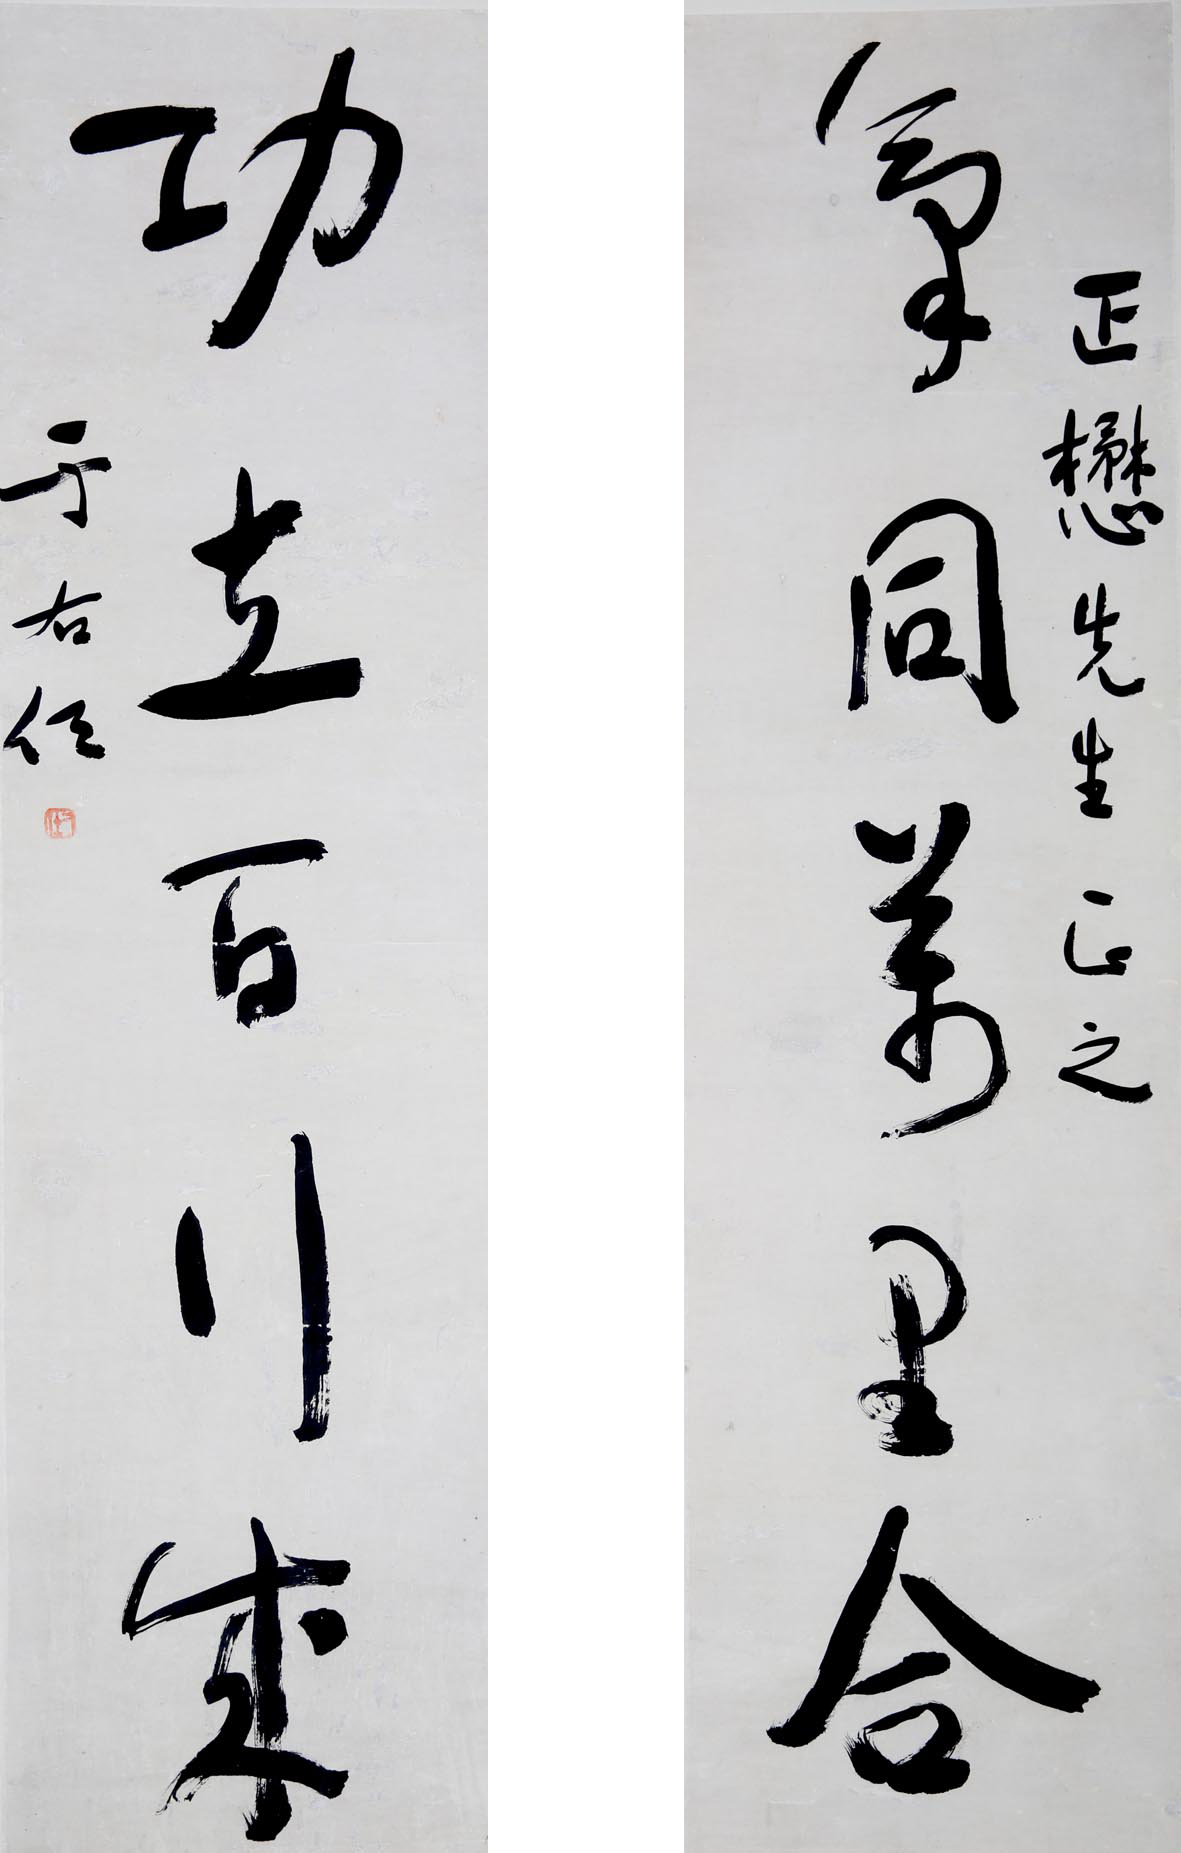 氣同萬里合
正懋先生正之
功立百行成
于右任